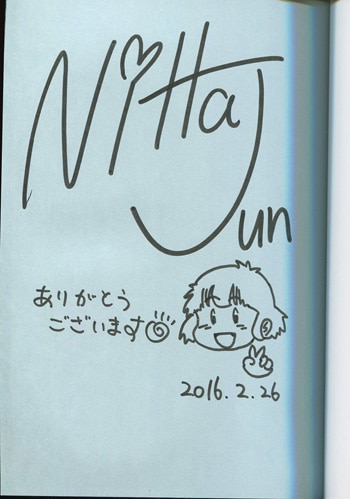 Nitta
Jun
ありがとう
ございます
2016.2.26